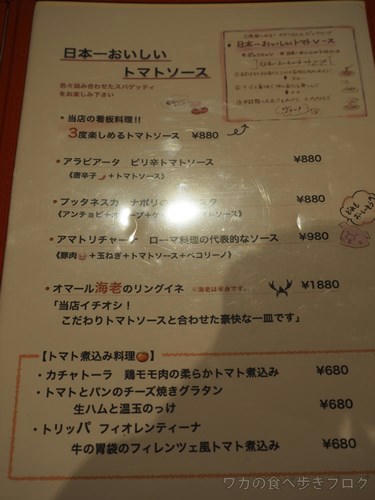 日本一おいしい
トマトソース
色々詰め合わせたスパゲッティ
をお楽しみ下さい
日本一おいしいトマトソース
・当店の看板料理!!
3度楽しめるトマトソース ¥880
・アラビアータ ピリ辛トマトソース ¥880
《唐辛子+トマトソース》
・プッタネスカ ナポリの スタ ¥880
《アンチョビ+オ ーブ+ケ ソース》
・アマトリチャーナ ローマ料理の代表的なソース ¥980
《豚肉 +玉ねぎ+トマトソース+ペコリーノ》
・オマール海老のリングイネ ※海老は半身です。 ¥1880
「当店イチオシ!
こだわりトマトソースと合わせた豪快な一皿です」
【トマト煮込み料理】
・カチャトーラ 鶏モモ肉の柔らかトマト煮込み ¥680
・トマトとパンのチーズ焼きグラタン
生ハムと温玉のっけ ¥680
・トリッパ フィオレンティーナ
牛の胃袋のフィレンツェ風トマト煮込み ¥680
ワカの食べ歩きブログ